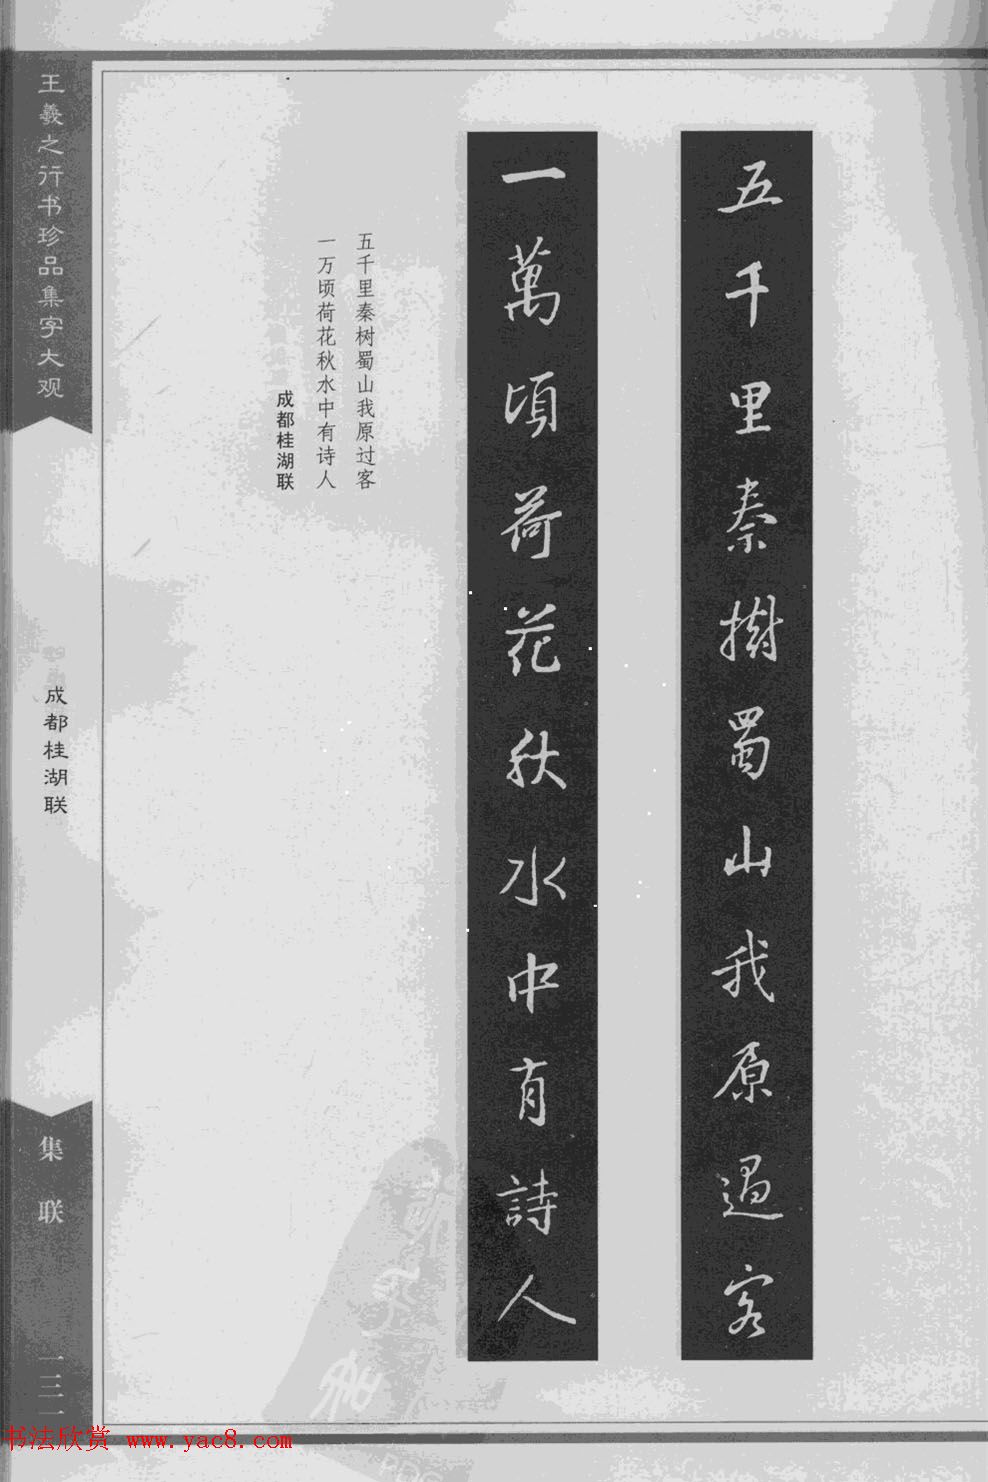 五千里秦樹蜀山我原過客
一萬頃荷花秋水中有詩人
五千里秦树蜀山我原过客
一万顷荷花秋水中有诗人
成都桂湖联
王羲之行书珍品集字大观
成都桂湖联
集联
一三一
书法欣赏 www.yac8.com